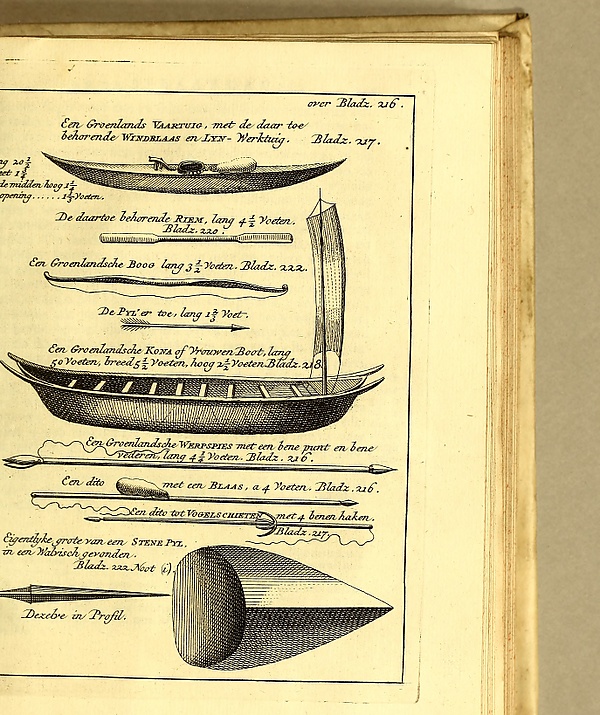 over Bladz. 216.
Een Groenlands VAARTUIG, met de daar toe
behorende WINDBLAAS en LYN-Werktuig. Bladz. 217.
ng 20 1/2
eet 1 3/4
de midden hoog 1 1/4
opening......1 3/4 Voeten.
De daartoe behorende RIEM, lang 4 1/2 Voeten.
Bladz. 220.
Een Groenlandsche BOOG lang 3 1/2 Voeten. Bladz. 222.
De PYL er toe, lang 1 2/3 Voet.
Een Groenlandsche KONA of Vrouwen Boot, lang
50 Voeten, breed 5 1/2 Voeten, hoog 2 1/2 Voeten Bladz. 218.
Een Groenlandsche WERPSPIES met een bene punt en bene
vederen, lang 4 1/2 Voeten. Bladz. 216.
Een dito met een BLAAS, a 4 Voeten. Bladz. 216.
Een dito tot VOGELSCHIETEN met 4 benen haken.
Bladz. 217.
Eigentlyke grote van een STENE PYL.
in een Walvisch gevonden.
Bladz. 222 Noot (i).
Dezelve in Profil.